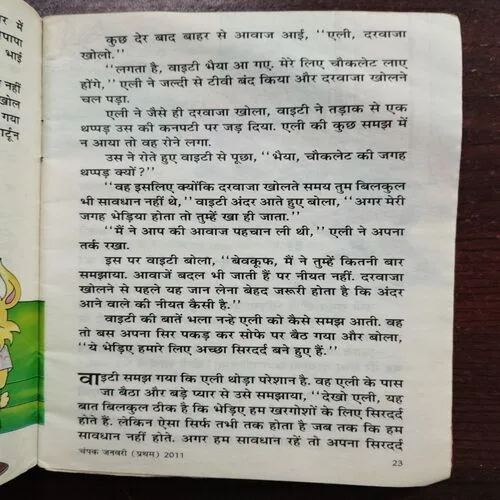 र में
पापा
भाई
नहीं
खोल
गया
ार्टून
कुछ देर बाद बाहर से आवाज आई, ‘‘एली, दरवाजा
खोलो.’’
‘‘लगता है, वाइटी भैया आ गए. मेरे लिए चौकलेट लाए
होंगे,’’ एली ने जल्दी से टीवी बंद किया और दरवाजा खोलने
चल पड़ा.
एली ने जैसे ही दरवाजा खोला, वाइटी ने तड़ाक से एक
थप्पड़ उस की कनपटी पर जड़ दिया. एली की कुछ समझ में
न आया तो वह रोने लगा.
उस ने रोते हुए वाइटी से पूछा, ‘‘भैया, चौकलेट की जगह
थप्पड़ क्यों?’’
‘‘वह इसलिए क्योंकि दरवाजा खोलते समय तुम बिलकुल
भी सावधान नहीं थे,’’ वाइटी अंदर आते हुए बोला, ‘‘अगर मेरी
जगह भेड़िया होता तो तुम्हें खा ही जाता.’’
‘‘मैं ने आप की आवाज पहचान ली थी,’’ एली ने अपना
तर्क रखा.
इस पर वाइटी बोला, ‘‘बेवकूफ, मैं ने तुम्हें कितनी बार
समझाया. आवाजें बदल भी जाती हैं पर नीयत नहीं. दरवाजा
खोलने से पहले यह जान लेना बेहद जरूरी होता है कि अंदर
आने वाले की नीयत कैसी है.’’
वाइटी की बातें भला नन्हे एली को कैसे समझ आती. वह
तो बस अपना सिर पकड़ कर सोफे पर बैठ गया और बोला,
‘‘ये भेड़िए हमारे लिए अच्छा सिरदर्द बने हुए हैं.’’
वाइटी समझ गया कि एली थोड़ा परेशान है. वह एली के पास
जा बैठा और बड़े प्यार से उसे समझाया, ‘‘देखो एली, यह
बात बिलकुल ठीक है कि भेड़िए हम खरगोशों के लिए सिरदर्द
होते हैं. लेकिन ऐसा सिर्फ तभी तक होता है जब तक कि हम
सावधान नहीं होते. अगर हम सावधान रहें तो अपना सिरदर्द
चंपक जनवरी (प्रथम) 2011
23